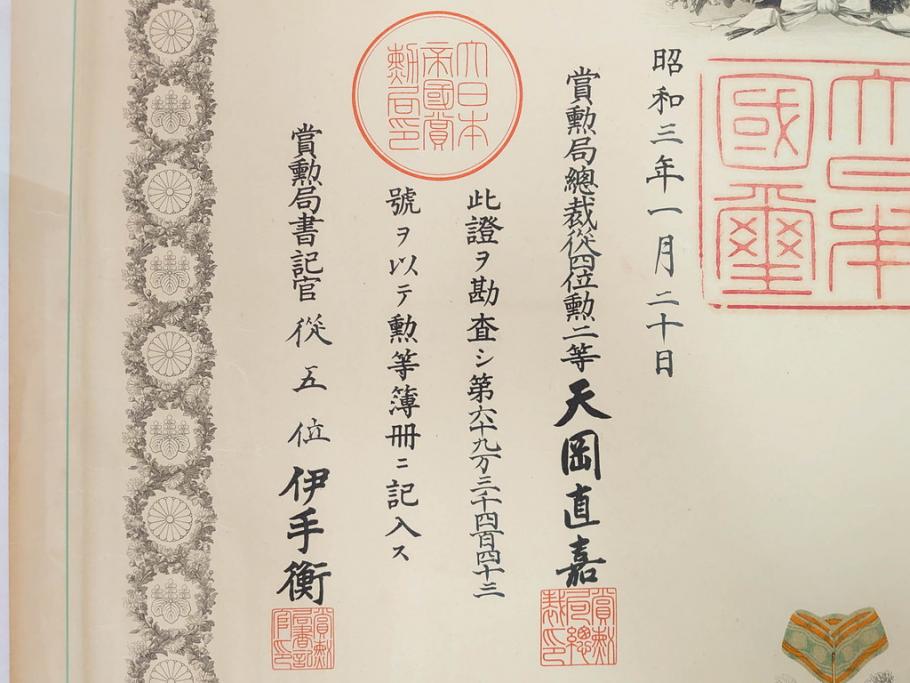 大日本
國璽
昭和三年一月二十日
賞勲局總裁從四位勲二等天岡直嘉
賞勲局總裁印
大日本
帝國賞
勲局印
此證ヲ勘査シ第六十九万三千四百四十三
號ヲ以テ勲等簿册ニ記入ス
賞勲局書記官從五位伊手衡
賞勲局書記官印